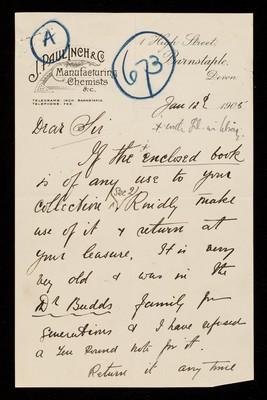 A
673
J. PAUL INCH & Co
Manufacturing
Chemists
&c.
TELEGRAMS INCH BARNSTAPLE.
TELEPHONE
1 High Street,
Barnstaple,
Devon
Jan 1905
Dear Sir
If the + enclosed book
is of any use to your
collection (Sec 2) Kindly make
use of it & return at
your leasure. It is very
very old & was in the
Dr Budds family for
generations & I have refused
a Ten Pound note for it.
Return it any time